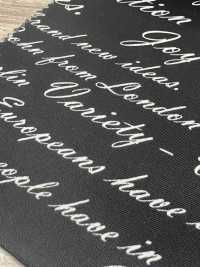 tion
es. Joy
rand new ideas.
ohn from London
rlin Variety –
Europeans have
eople have in